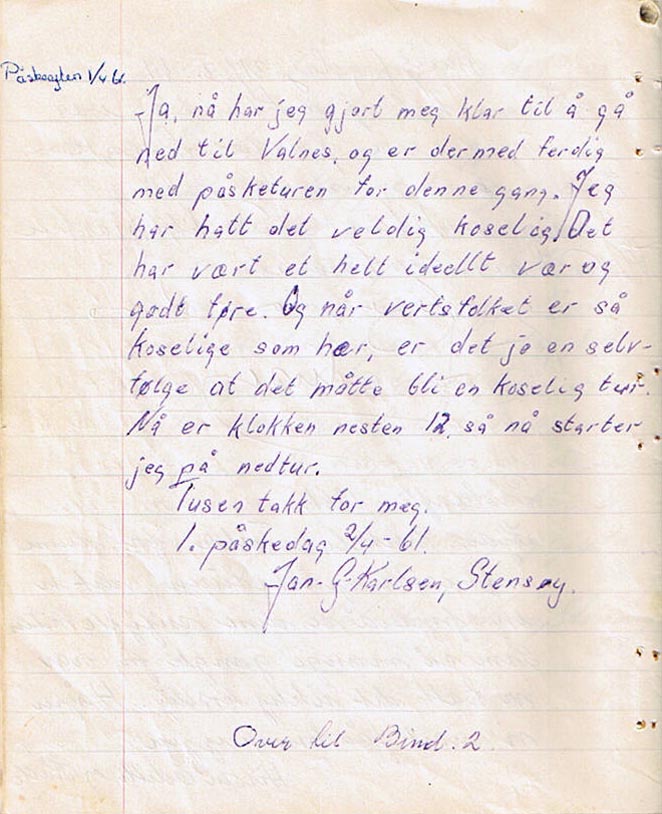 Påskeaften 1/4. 61.
Ja, nå har jeg gjort meg klar til å gå
ned til Valnes, og er dermed ferdig
med påsketuren for denne gang. Jeg
har hatt det veldig koselig. Det
har vært et helt ideellt vær og
godt føre. Og når vertsfolket er så
koselige som her, er det jo en selv-
følge at det måtte bli en koselig tur.
Nå er klokken nesten 12, så nå starter
jeg på nedtur.
Tusen takk for meg.
1. påskedag 2/4-61.
Jan-G-Karlsen, Stensøy.
Over til Bind. 2.